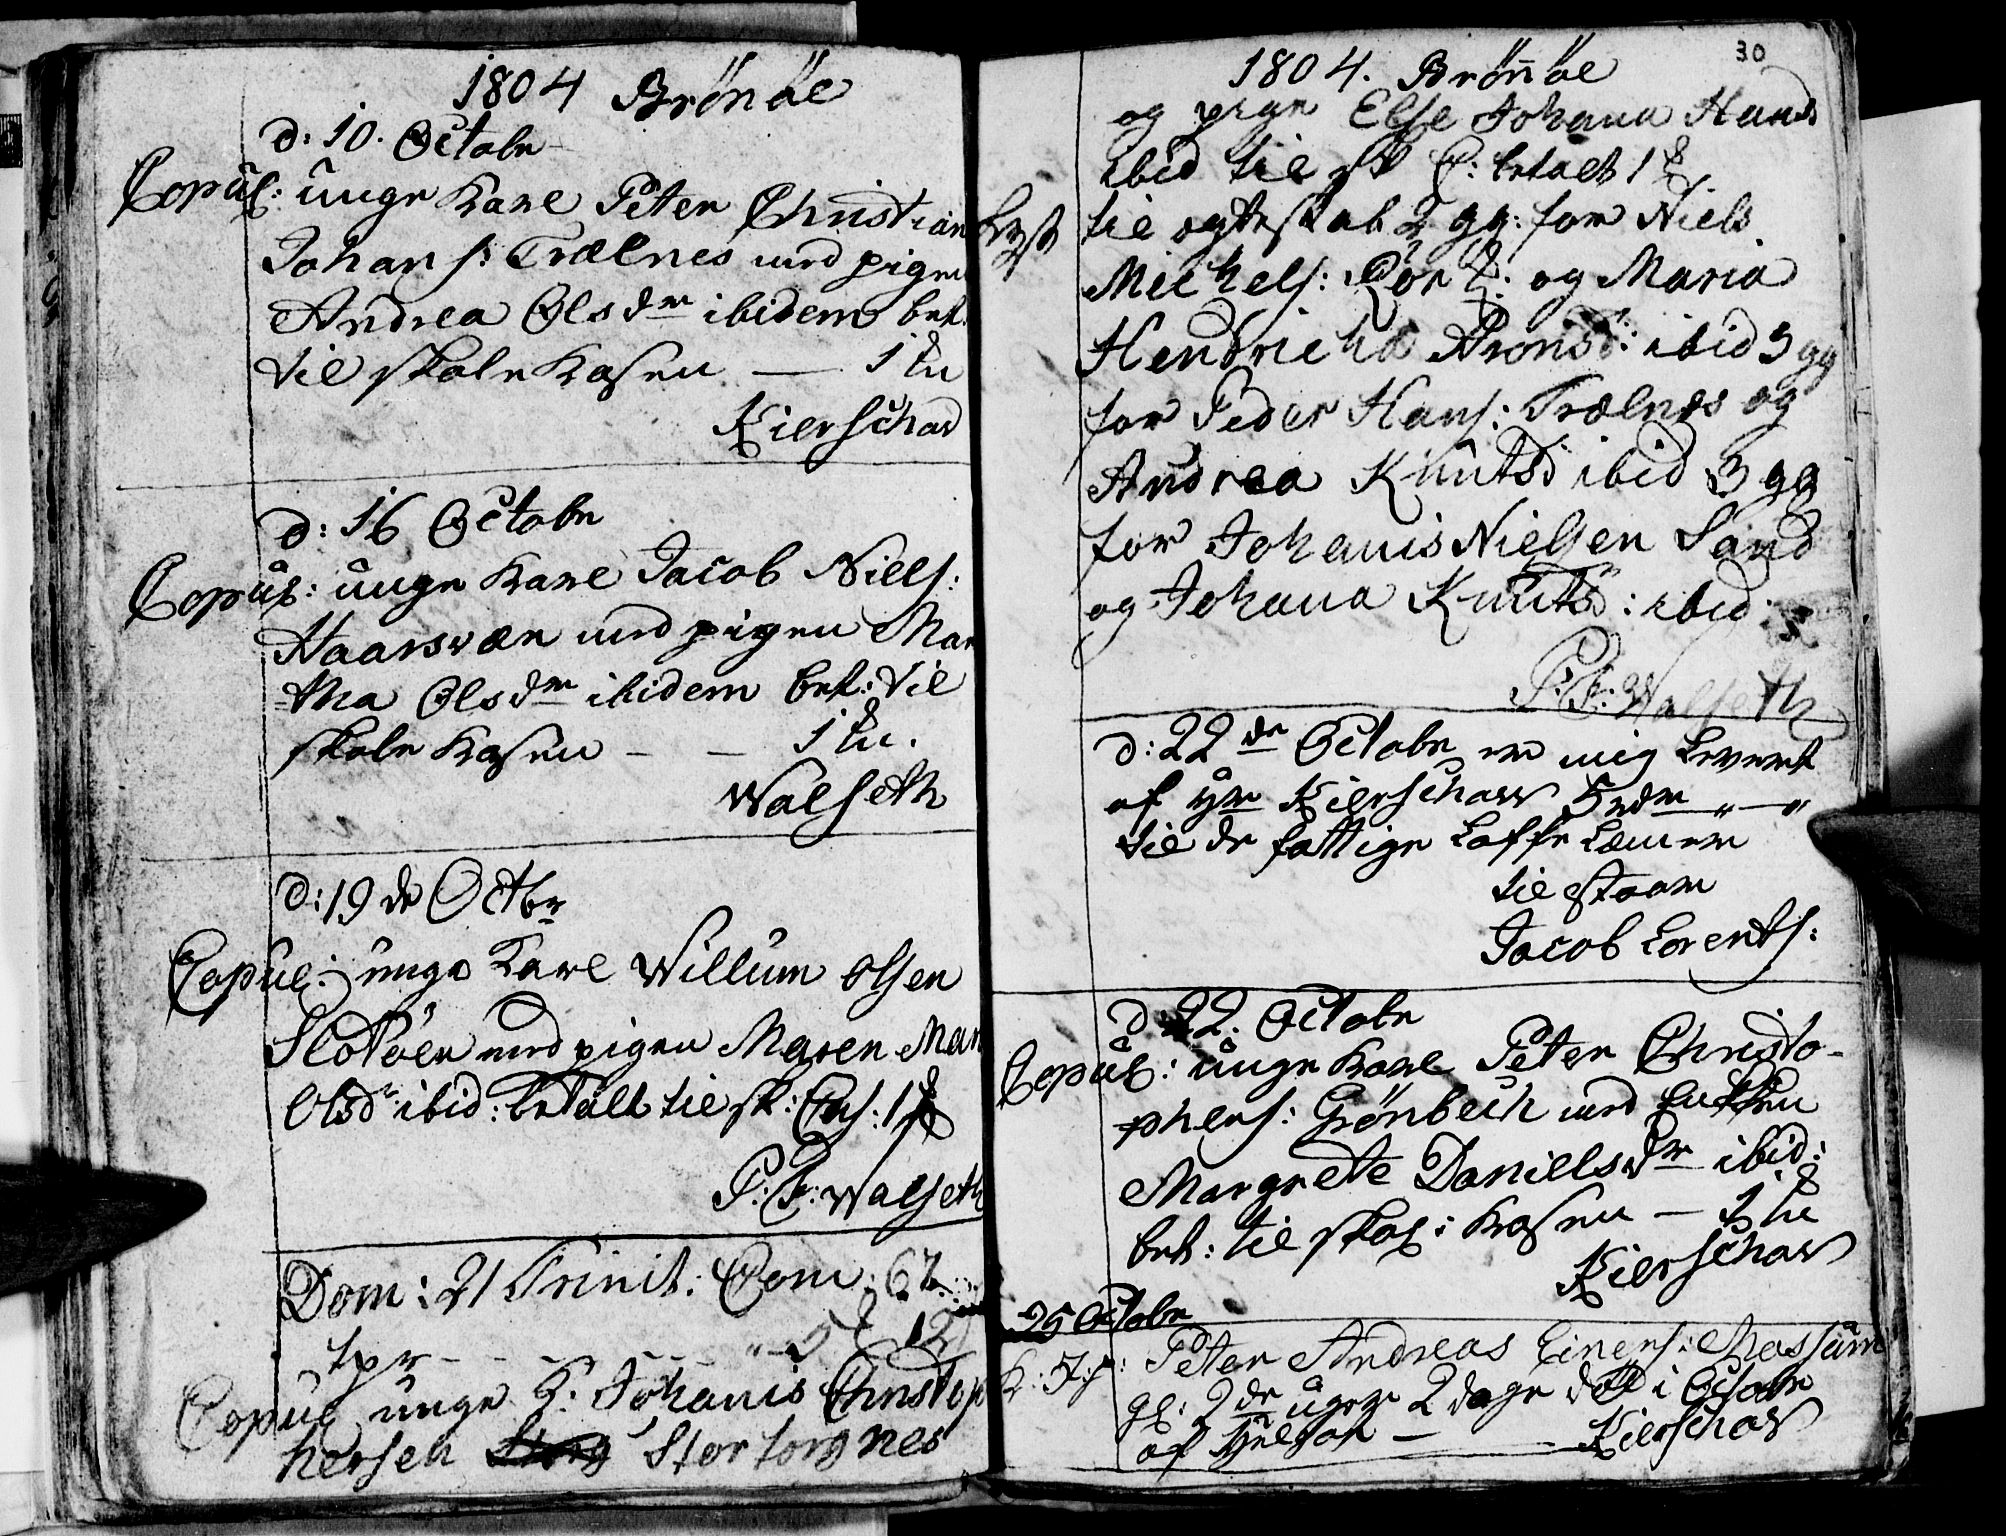 1804 Brönöe
d: 10. Octobr
Copul: unge Karl Peter Christian
Johans: Trælnes med pigen
Andrea Olsdr ibidem bet:
til skole Kasen — 1
Kierschow
d: 16 Octobr
Copul: unge Karl Jacob Niels:
Haarsvær med pigen Mar
=tha Olsdr ibidem bet: til
skole Kasen — — 1
Walseth
d: 19 de Octbr
Copul: unge Karl Willum Olsen
med pigen Maren Mar
Olsd: ibid: betalt til sk: Cas: 1
P: F: Walseth
Dom: 21 Trinit: Com: 67
Copul unge K: Johanis Christop
hersen Stortorgnes
1804. Brönöe
30
og pige Else Johana Hansd
ibid til sk C: betalt 1
lyst til egteskab 2 gg: for Niels
Michels: og Maria
Hendricha Aronsd: ibid 3 gg
for Peder Hans: Trælnes og
Andrea Knutsd ibid 3 gg
for Johanis Nielsen Sand
og Johana Knutsd: ibid:
P: F: Walseth
d: 22 de Octobr er mig leveret
af Hr Kierschow 5
til de fattige
til staar
Jacob Lorents:
d 22. Octobr
Copul: unge Karl Peter Christo-
phers: Grönbech med Enken
Margrete Danielsdr ibid:
bet: til skol: Kasen — 1
Kierschow
25 Octobr
Peter Andreas Einers: Mossum
gl: 2 de uger 2 dage död i Octobr
af —
Kierschow